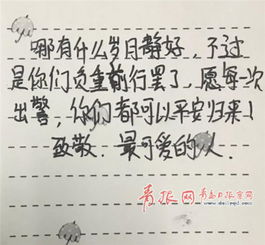 哪有什么岁月静好，不过
是你们负重前行罢了，愿每一次
出警，你们都可以平安归来！
致敬．最可爱的人．
青报网 青岛日报官网